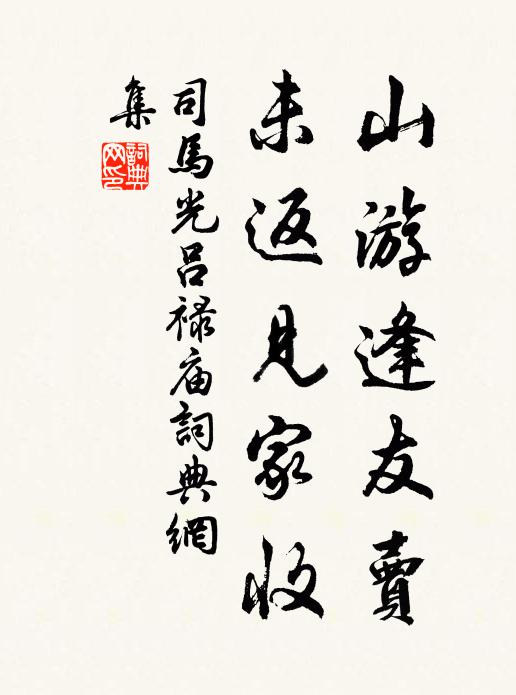 山游逢友賣
未返見家收
司馬光吕禄庙詞典網
集
詞典网印